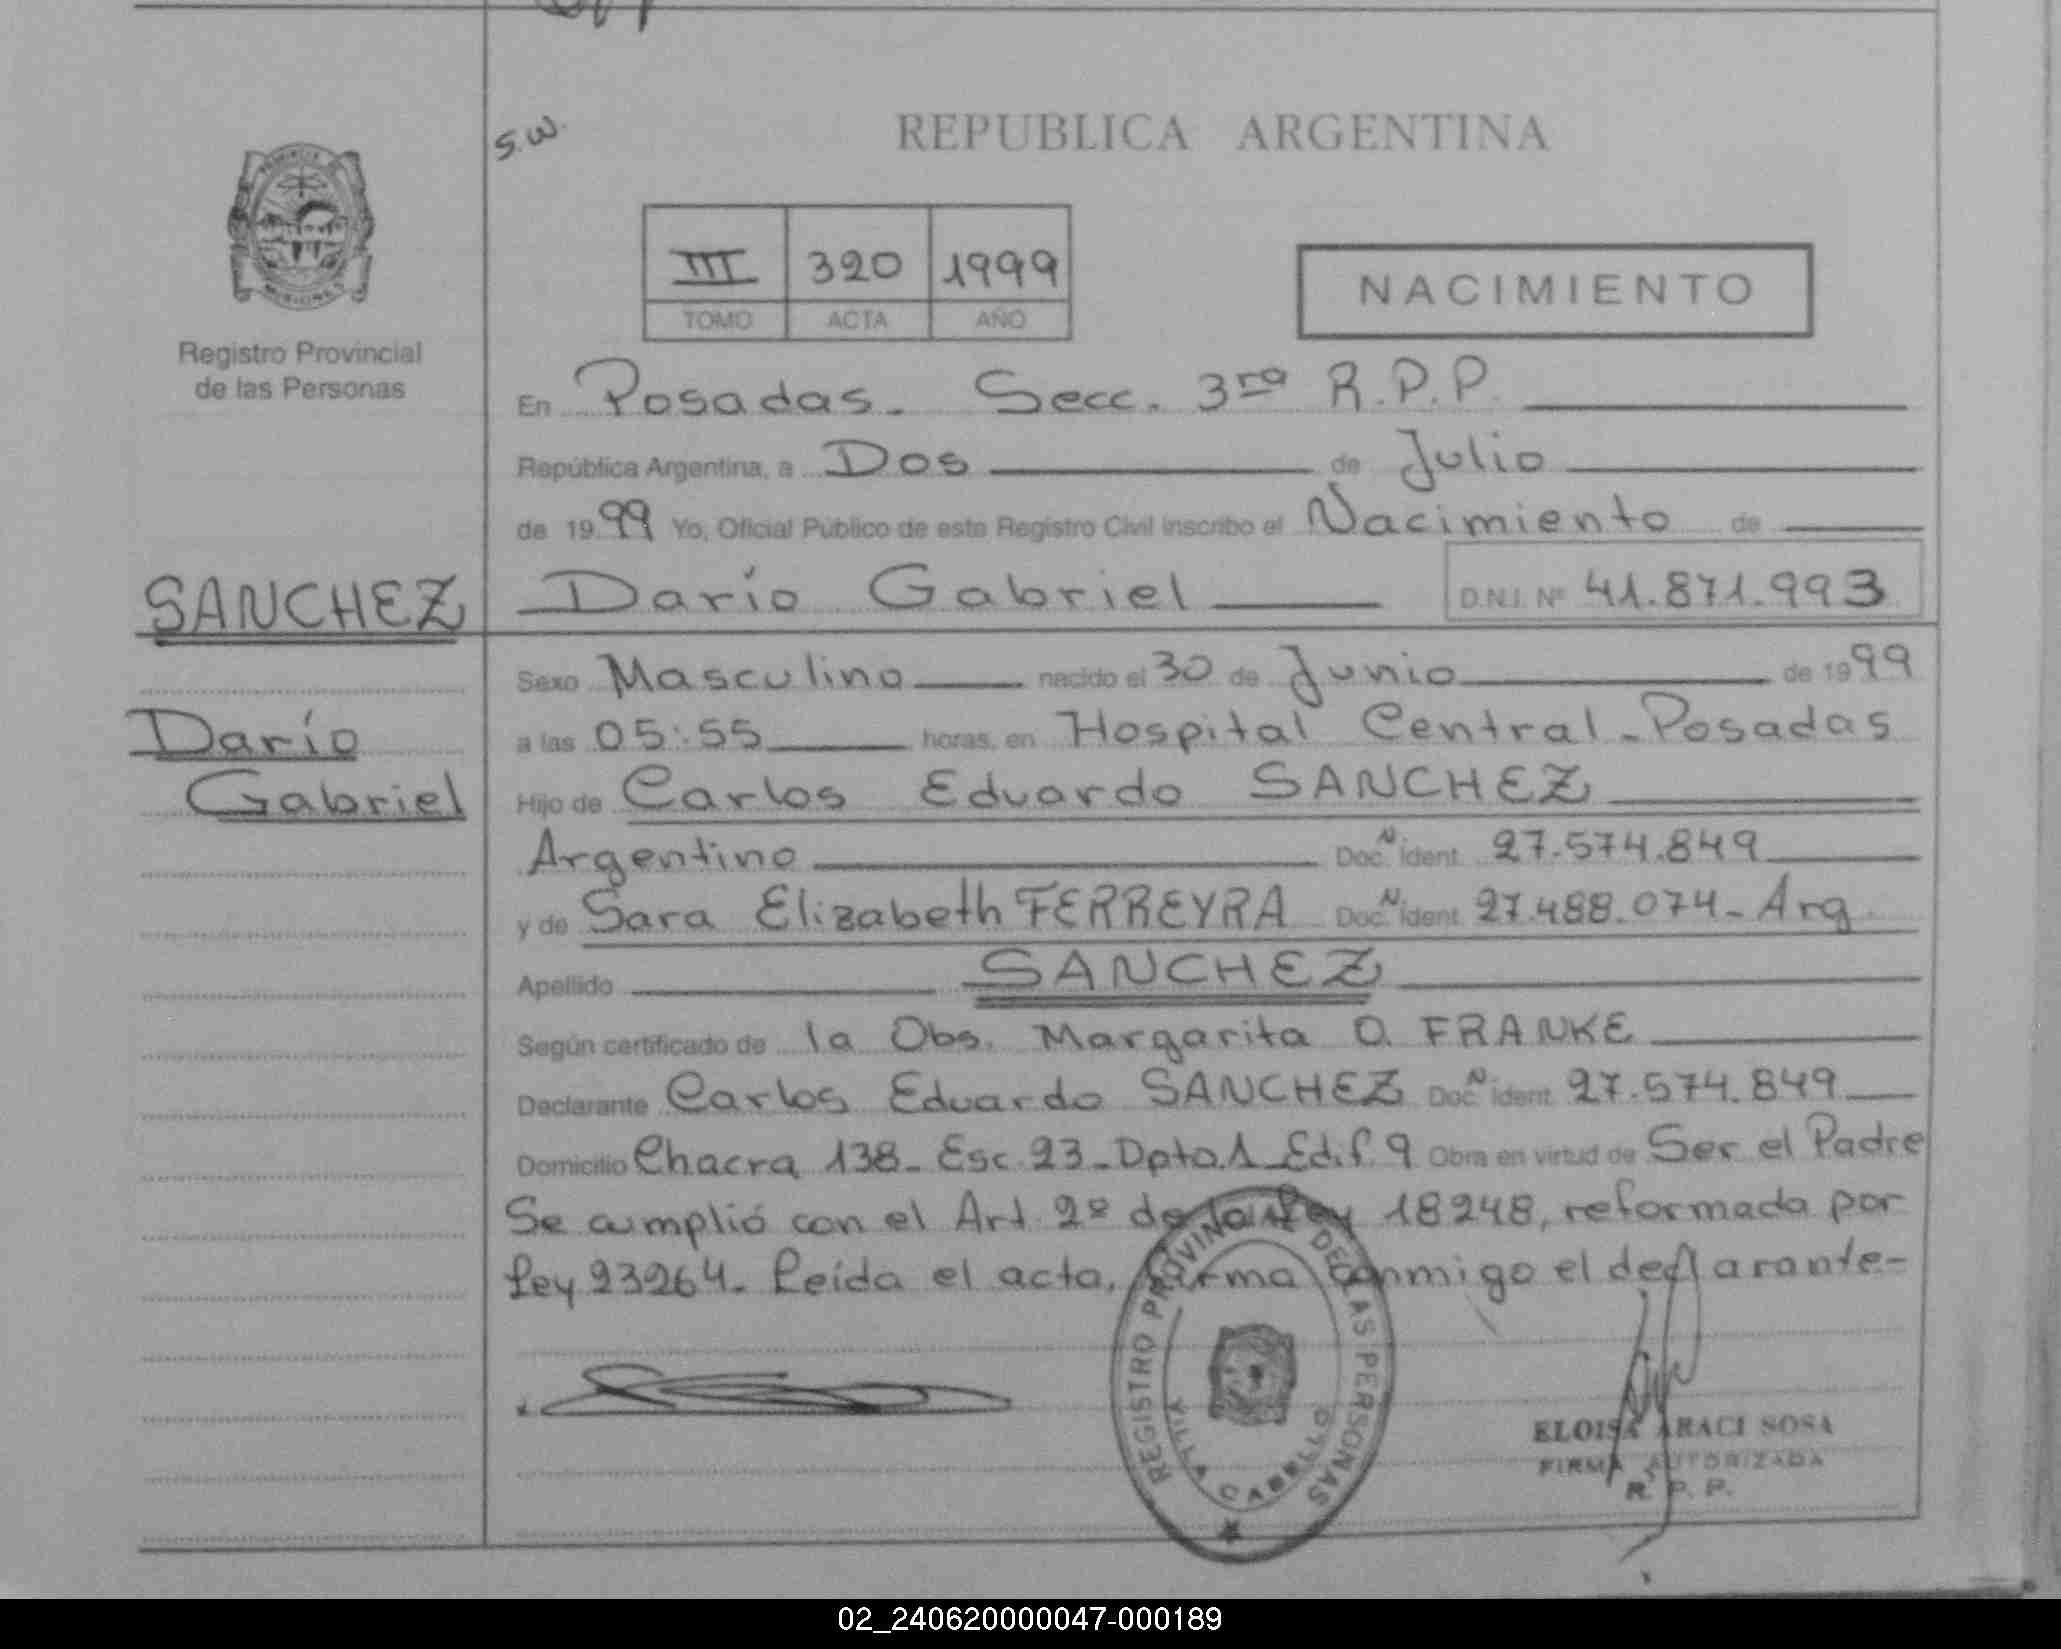 S.W.
REPUBLICA ARGENTINA
PROVINCIA DE
MISIONES
Registro Provincial
de las Personas
III 320 1999
TOMO ACTA AÑO
NACIMIENTO
En Posadas. Secc. 3ra R.P.P.
República Argentina, a Dos de Julio
de 1999 Yo, Oficial Público de este Registro Civil inscribo el Nacimiento de
SANCHEZ
Darío Gabriel D.N.I. Nº 41.871.993
Sexo Masculino nacido el 30 de Junio de 1999
Darío
Gabriel
a las 05:55 horas, en Hospital Central - Posadas
Hijo de Carlos Eduardo SANCHEZ
Argentino Doc. N Ident. 27.574.849
y de Sara Elizabeth FERREYRA Doc. N Ident. 27.488.074 - Arg.
Apellido SANCHEZ
Según certificado de la Obs. Margarita O. FRANKE
Declarante Carlos Eduardo SANCHEZ Doc. N Ident. 27.574.849
Domicilio Chacra 138 - Esc. 23 - Dpto. 1 - Edif. 9 Obra en virtud de Ser el Padre
Se cumplió con el Art. 2º de la Ley 18248, reformada por
Ley 23264. Leída el acta, firma conmigo el declarante-
REGISTRO PROVINCIAL DE LAS PERSONAS
VILLA CABELLO
ELOISA ARACI SOSA
FIRMA AUTORIZADA
R. P. P.
02_240620000047-000189